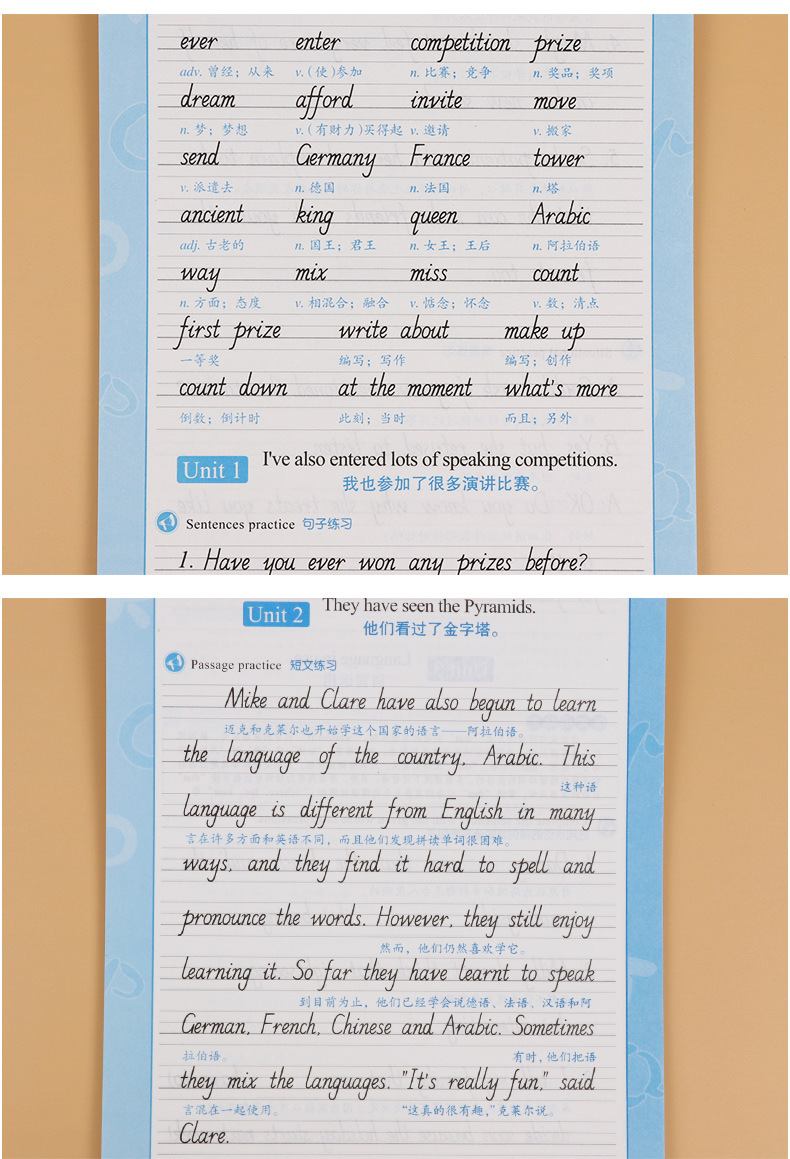 ever enter competition prize
adv. 曾经；从来 v. (使)参加 n. 比赛；竞争 n. 奖品；奖项
dream afford invite move
n. 梦；梦想 v. (有财力)买得起 v. 邀请 v. 搬家
send Germany France tower
v. 派遣去 n. 德国 n. 法国 n. 塔
ancient king queen Arabic
adj. 古老的 n. 国王；君王 n. 女王；王后 n. 阿拉伯语
way mix miss count
n. 方面；态度 v. 相混合；融合 v. 惦念；怀念 v. 数；清点
first prize write about make up
一等奖 编写；写作 编写；创作
count down at the moment what's more
倒数；倒计时 此刻；当时 而且；另外
Unit 1 I've also entered lots of speaking competitions.
我也参加了很多演讲比赛。
Sentences practice 句子练习
1. Have you ever won any prizes before?
Unit 2 They have seen the Pyramids.
他们看过了金字塔。
Passage practice 短文练习
Mike and Clare have also begun to learn
迈克和克莱尔也开始学这个国家的语言——阿拉伯语。
the language of the country, Arabic. This
这种语
language is different from English in many
言在许多方面和英语不同，而且他们发现拼读单词很困难。
ways, and they find it hard to spell and
pronounce the words. However, they still enjoy
然而，他们仍然喜欢学它。
learning it. So far they have learnt to speak
到目前为止，他们已经学会说德语、法语、汉语和阿
German, French, Chinese and Arabic. Sometimes
拉伯语。 有时，他们把语
they mix the languages. "It's really fun," said
言混在一起使用。 “这真的很有趣，”克莱尔说。
Clare.